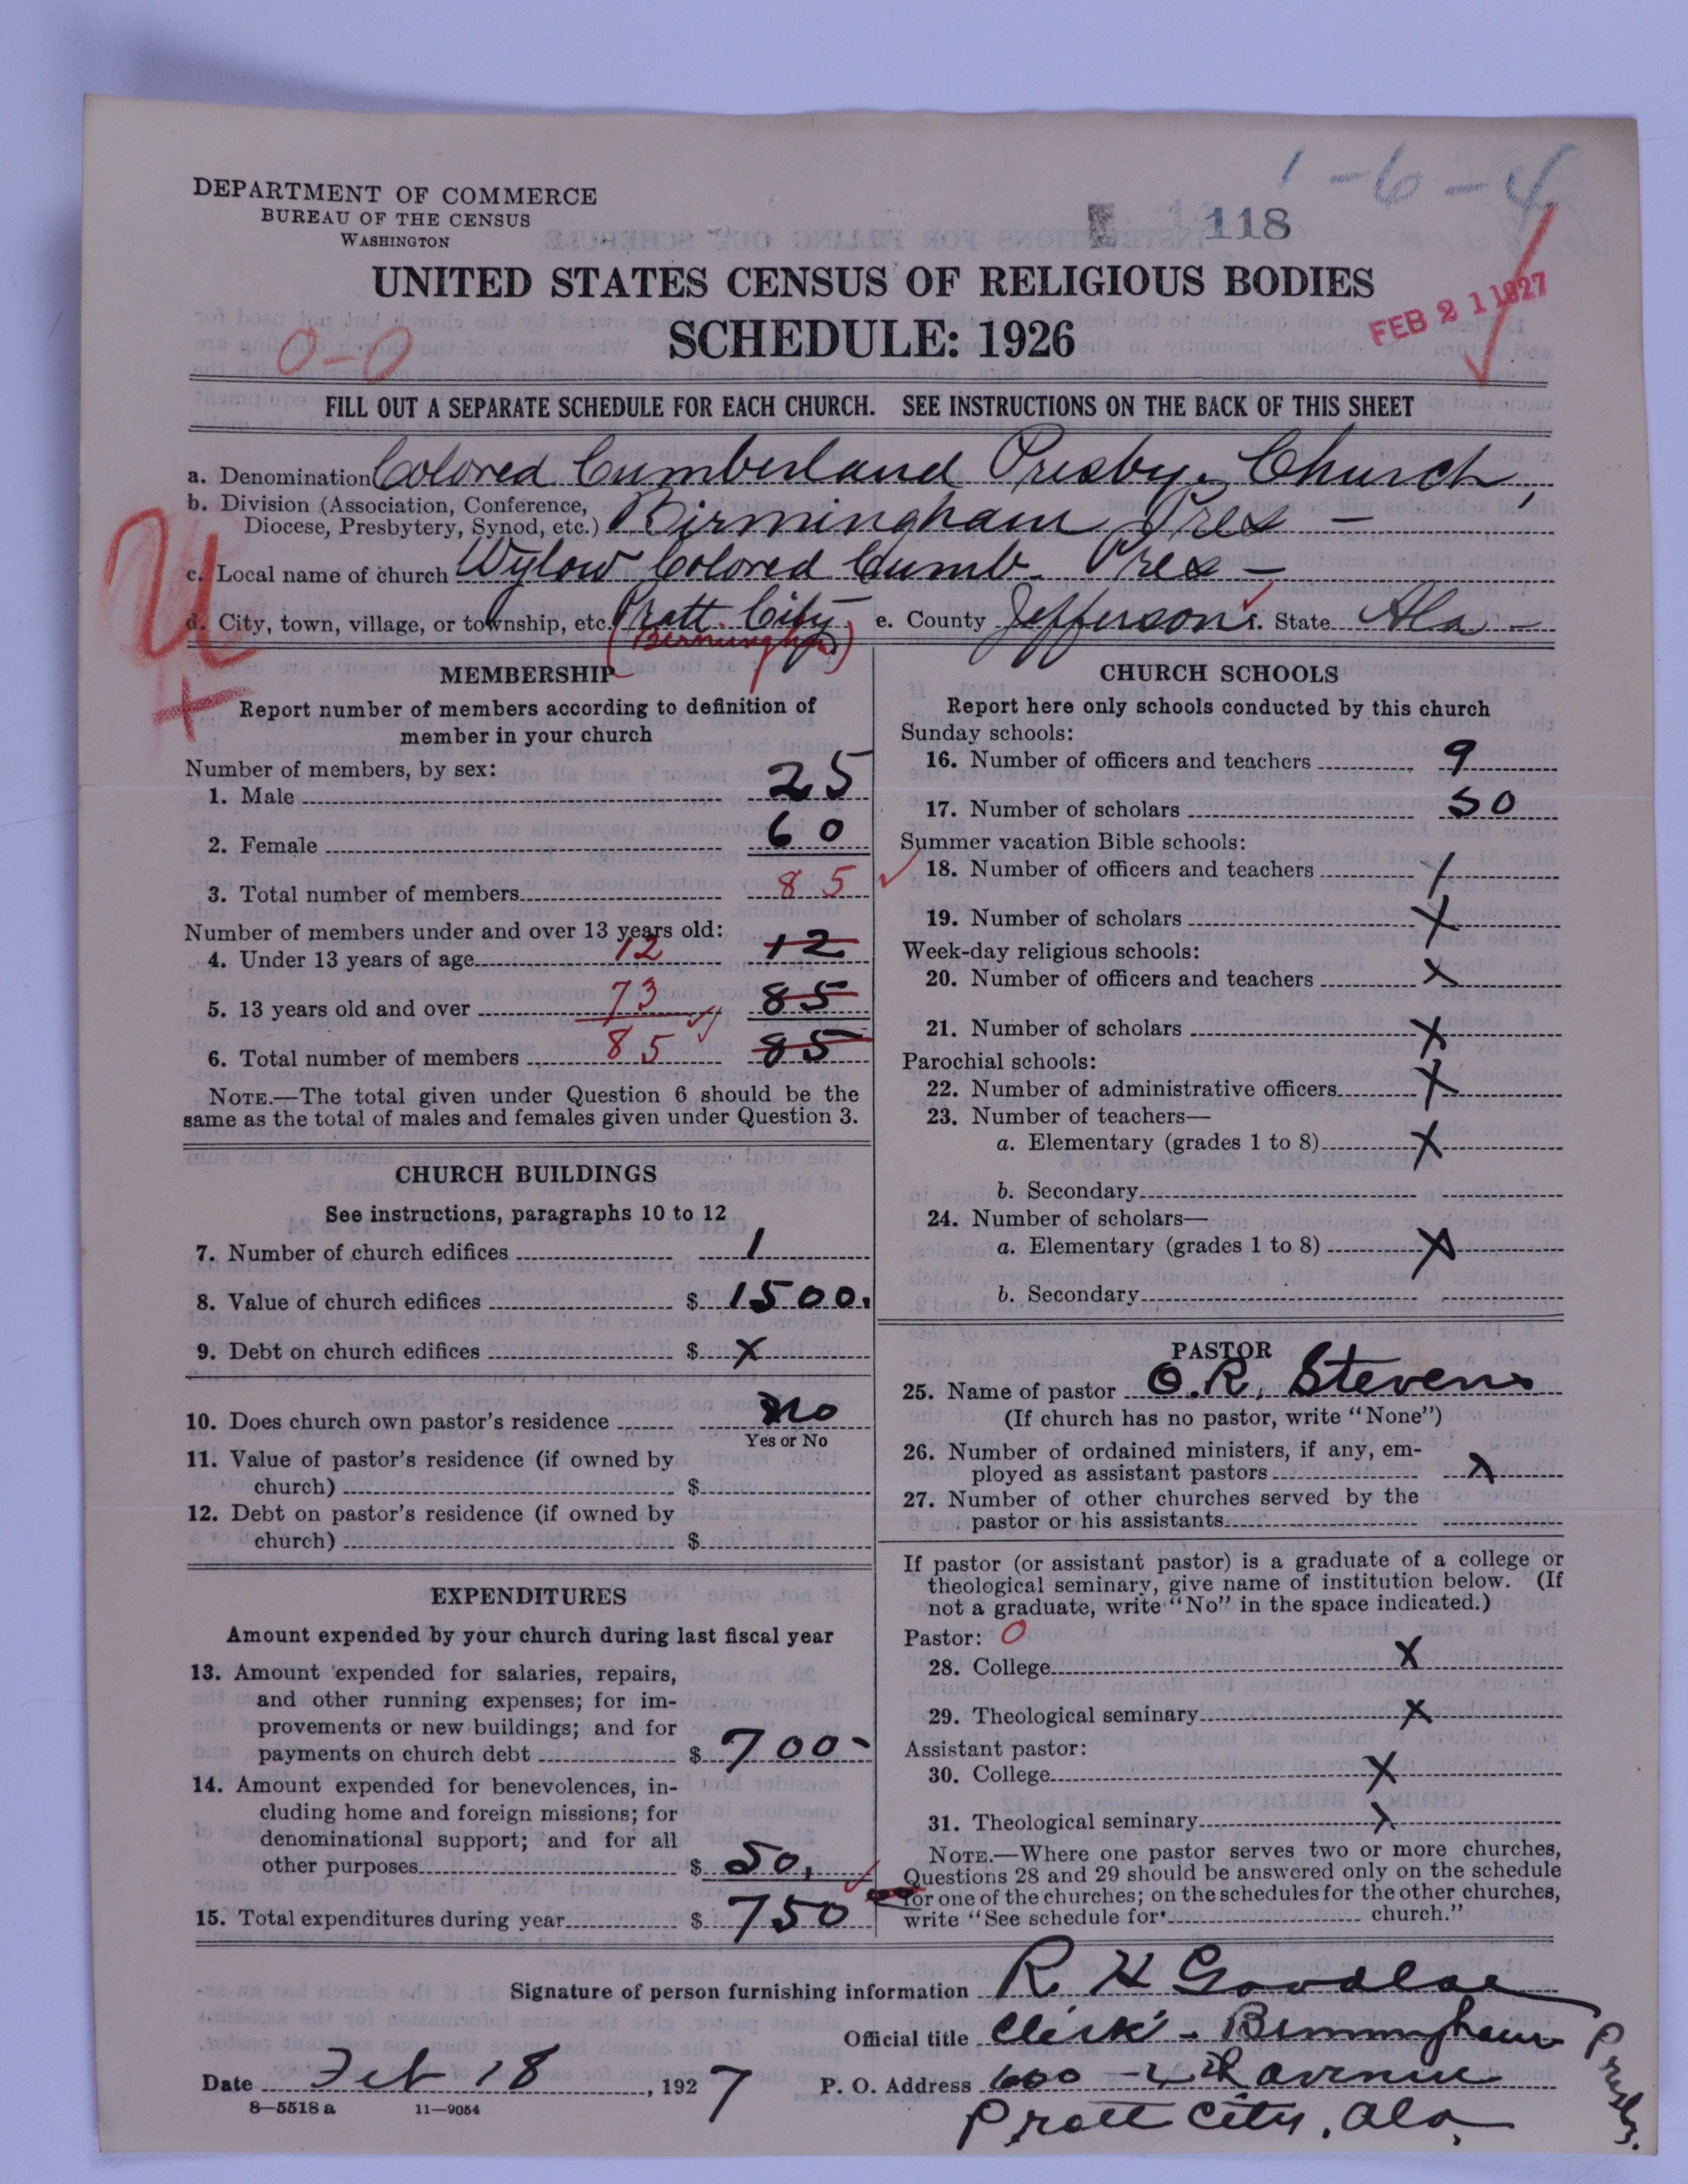 1-6-4
DEPARTMENT OF COMMERCE
BUREAU OF THE CENSUS
WASHINGTON
118
UNITED STATES CENSUS OF RELIGIOUS BODIES
SCHEDULE: 1926
FEB 21 1927
0-0
FILL OUT A SEPARATE SCHEDULE FOR EACH CHURCH. SEE INSTRUCTIONS ON THE BACK OF THIS SHEET
a. Denomination Colored Cumberland Presby. Church,
b. Division (Association, Conference,
Diocese, Presbytery, Synod, etc.) Birmingham Pres -
c. Local name of church Wylow Colored Cumb. Pres -
d. City, town, village, or township, etc. Pratt City e. County Jefferson f. State Ala -
(Birmingham)
U
+
MEMBERSHIP
Report number of members according to definition of
member in your church
Number of members, by sex:
1. Male 25
2. Female 60
3. Total number of members 85
Number of members under and over 13 years old:
4. Under 13 years of age 12 12
5. 13 years old and over 73 85
6. Total number of members 85 85
NOTE.—The total given under Question 6 should be the
same as the total of males and females given under Question 3.
CHURCH BUILDINGS
See instructions, paragraphs 10 to 12
7. Number of church edifices 1
8. Value of church edifices $ 1500.
9. Debt on church edifices $ X
10. Does church own pastor's residence No
Yes or No
11. Value of pastor's residence (if owned by
church) $
12. Debt on pastor's residence (if owned by
church) $
EXPENDITURES
Amount expended by your church during last fiscal year
13. Amount expended for salaries, repairs,
and other running expenses; for im-
provements or new buildings; and for
payments on church debt $ 700-
14. Amount expended for benevolences, in-
cluding home and foreign missions; for
denominational support; and for all
other purposes $ 50.
15. Total expenditures during year $ 750
CHURCH SCHOOLS
Report here only schools conducted by this church
Sunday schools:
16. Number of officers and teachers 9
17. Number of scholars 50
Summer vacation Bible schools:
18. Number of officers and teachers X
19. Number of scholars X
Week-day religious schools:
20. Number of officers and teachers X
21. Number of scholars X
Parochial schools:
22. Number of administrative officers X
23. Number of teachers—
a. Elementary (grades 1 to 8) X
b. Secondary
24. Number of scholars—
a. Elementary (grades 1 to 8) X
b. Secondary
PASTOR
25. Name of pastor O.R. Stevens
(If church has no pastor, write "None")
26. Number of ordained ministers, if any, em-
ployed as assistant pastors X
27. Number of other churches served by the
pastor or his assistants
If pastor (or assistant pastor) is a graduate of a college or
theological seminary, give name of institution below. (If
not a graduate, write "No" in the space indicated.)
Pastor: 0
28. College X
29. Theological seminary X
Assistant pastor:
30. College X
31. Theological seminary X
NOTE.—Where one pastor serves two or more churches,
Questions 28 and 29 should be answered only on the schedule
for one of the churches; on the schedules for the other churches,
write "See schedule for church."
Signature of person furnishing information R H Goodloe
Official title Clerk - Birmingham
Presby.
Date Feb 18, 1927 P. O. Address 600 - 2nd avenue
Pratt City, Ala.
8—5518 a 11—9054